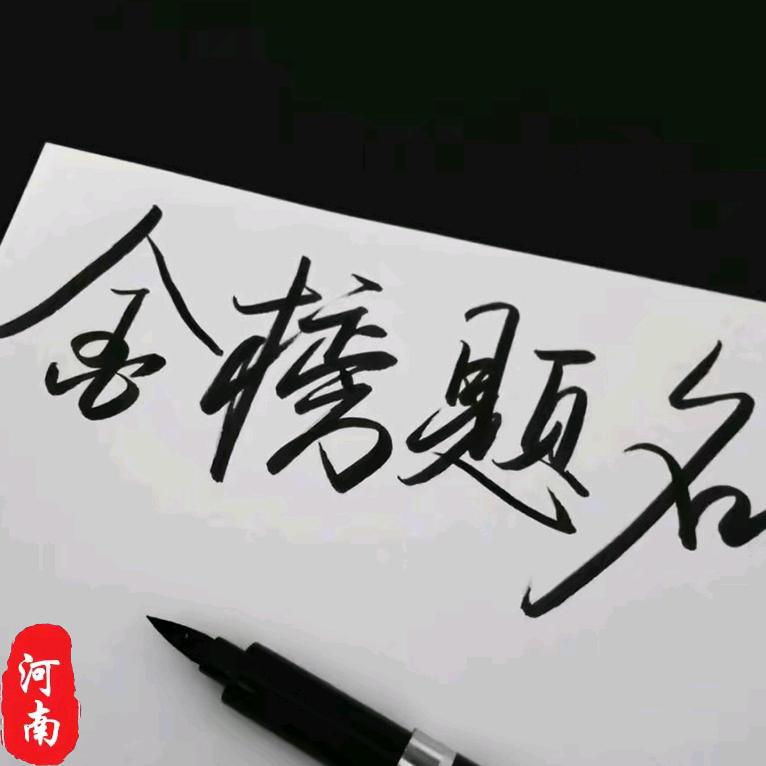 金榜题名
河南